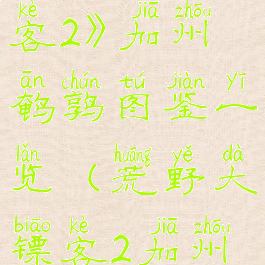 kè jiā zhōu
客2》加州
ān chún tú jiàn yī
鹌鹑图鉴一
lǎn huāng yě dà
览（荒野大
biāo kè jiā zhōu
镖客2加州